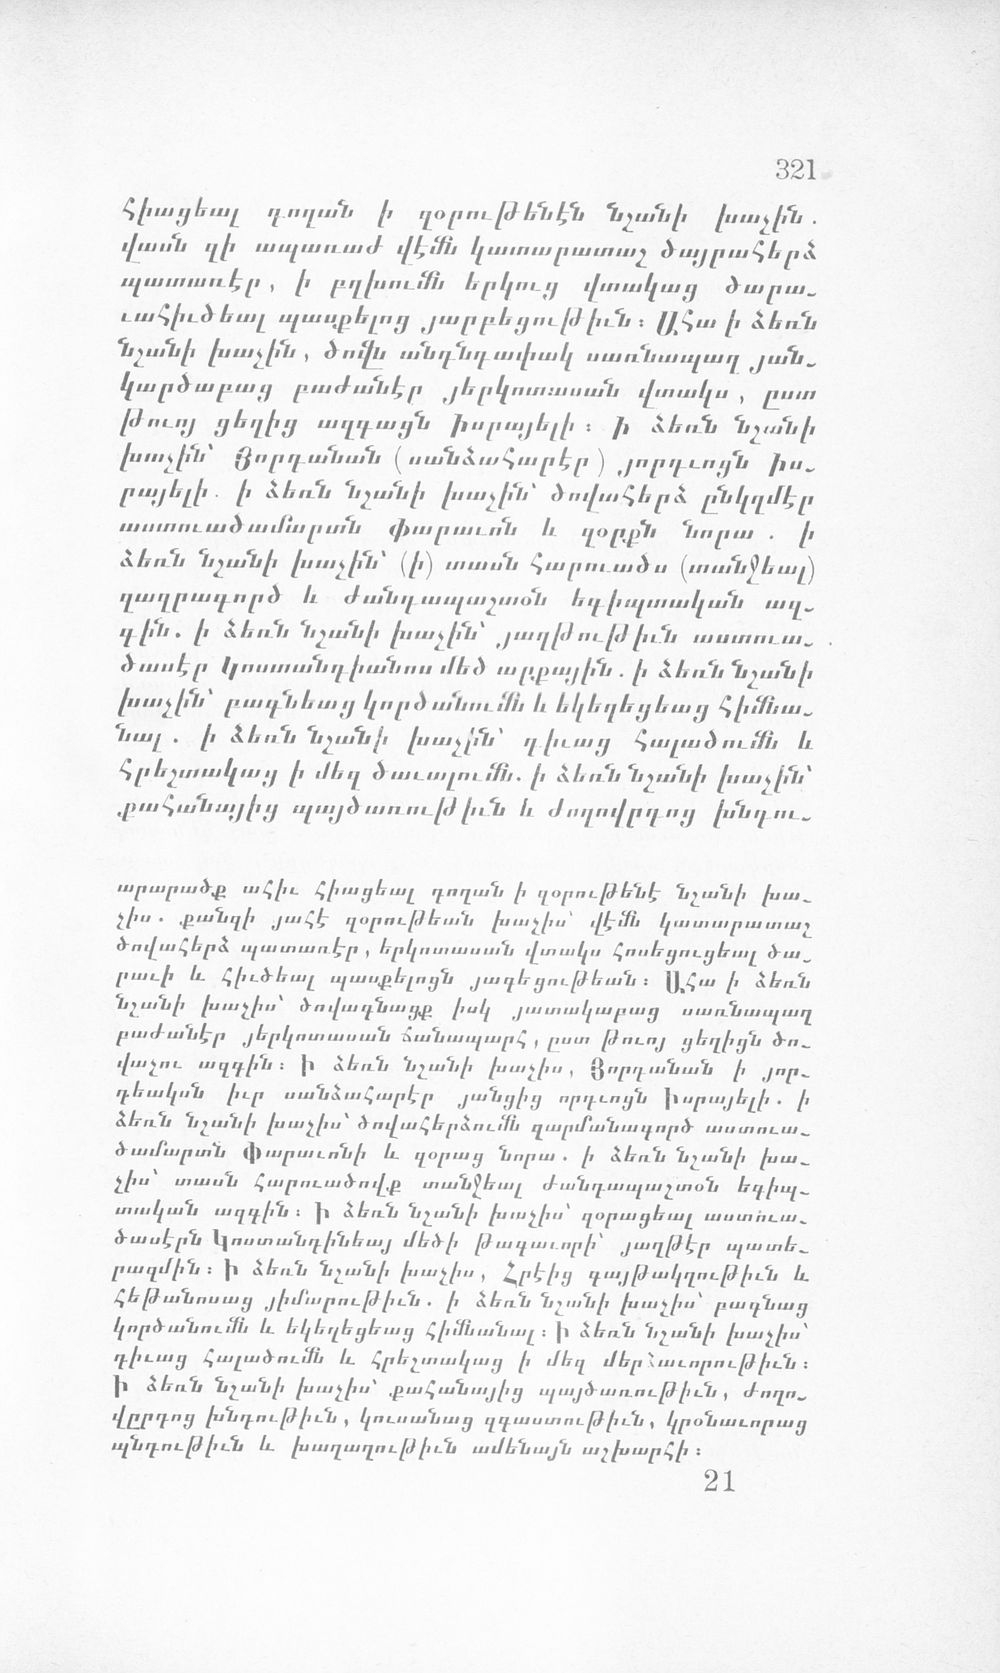 321
հիացեալ դողան ի զօրութենէն նշանի խաչին.
վասն զի ապառաժ վէմն կատարատաշ ծայրահերձ
պատառէր, ի բղխումն երկուց վտակաց ծարա֊
ւահիւծեալ պասքելոց յարբեցութիւն։ Ահա ի ձեռն
նշանի խաչին, ծովն անդնդափակ սառնապաղ յան֊
կարծաբաց բաժանէր յերկոտասան վտակս, ըստ
թուոյ ցեղից ազգացն Իսրայելի։ Ի ձեռն նշանի
խաչին՝ Յորդանան (սանձահարէր) յորդւոցն Իս֊
րայելի. ի ձեռն նշանի խաչին՝ ծովահերձ ընկղմէր
աստուածամարտն Փարաւոն և զօրքն նորա. ի
ձեռն նշանի խաչին՝ (ի) տասն հարուածս (տանջեալ)
զաղրագործ և ժանդապաշտօն եգիպտական ազ֊
գին. ի ձեռն նշանի խաչին՝ յաղթութիւն աստուա֊
ծասէր Կոստանդիանոս մեծ արքային. ի ձեռն նշանի
խաչին՝ բագնեաց կործանումն և եկեղեցեաց հիմնա֊
նալ. ի ձեռն նշանի խաչին՝ դիւաց հալածումն և
հրեշտակաց ի մեզ ծաւալումն. ի ձեռն նշանի խաչին՝
քահանայից պայծառութիւն և ժողովրդոց խնդու֊
արարածք ահիւ հիացեալ դողան ի զօրութենէ նշանի խա֊
չիս. քանզի յահէ զօրութեան խաչիս՝ վէմն կատարատաշ
ծովահերձ պատառէր, երկոտասան վտակս հոսեցուցեալ ծա֊
րաւի և հիւծեալ պասքելոցն յագեցութեան։ Ահա ի ձեռն
նշանի խաչիս՝ ծովագնացք իսկ յատակաբաց սառնապաղ
բաժանէր յերկոտասան ճանապարհ, ըստ թուոյ ցեղիցն ծո֊
վաչու ազգին։ Ի ձեռն նշանի խաչիս, Յորդանան ի յոր֊
դեակսն իւր սանձահարէր յանցից որդւոցն Իսրայելի. ի
ձեռն նշանի խաչիս՝ ծովահերձումն զարմանագործ աստուա֊
ծամարտն Փարաւոնի և զօրաց նորա. ի ձեռն նշանի խա֊
չիս՝ տասն հարուածովք տանջեալ ժանդապաշտօն եգիպ֊
տական ազգին։ Ի ձեռն նշանի խաչիս՝ զօրացեալ աստուա֊
ծասէրն Կոստանդինեայ մեծի թագաւորի՝ յաղթէր պատե֊
րազմին։ Ի ձեռն նշանի խաչիս, Հրէից գայթակղութիւն և
հեթանոսաց յիմարութիւն. ի ձեռն նշանի խաչիս՝ բագնաց
կործանումն և եկեղեցեաց հիմնանալ։ Ի ձեռն նշանի խաչիս՝
դիւաց հալածումն և հրեշտակաց ի մեզ մերձաւորութիւն։
Ի ձեռն նշանի խաչիս՝ քահանայից պայծառութիւն, ժողո֊
վըրդոց խնդութիւն, կուսանաց զգաստութիւն, կրօնաւորաց
պնդութիւն և խաղաղութիւն ամենայն աշխարհի։
21